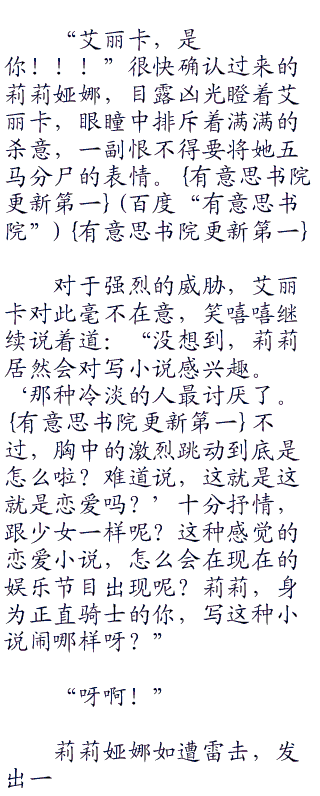 “艾丽卡，是
你！！！”很快确认过来的
莉莉娅娜，目露凶光瞪着艾
丽卡，眼瞳中排斥着满满的
杀意，一副恨不得要将她五
马分尸的表情。{有意思书院
更新第一}(百度“有意思书
院”){有意思书院更新第一}
对于强烈的威胁，艾丽
卡对此毫不在意，笑嘻嘻继
续说着道：“没想到，莉莉
居然会对写小说感兴趣。
‘那种冷淡的人最讨厌了。
{有意思书院更新第一}不
过，胸中的激烈跳动到底是
怎么啦？难道说，这就是这
就是恋爱吗？’十分抒情，
跟少女一样呢？这种感觉的
恋爱小说，怎么会在现在的
娱乐节目出现呢？莉莉，身
为正直骑士的你，写这种小
说闹哪样呀？”
“呀啊！”
莉莉娅娜如遭雷击，发
出一